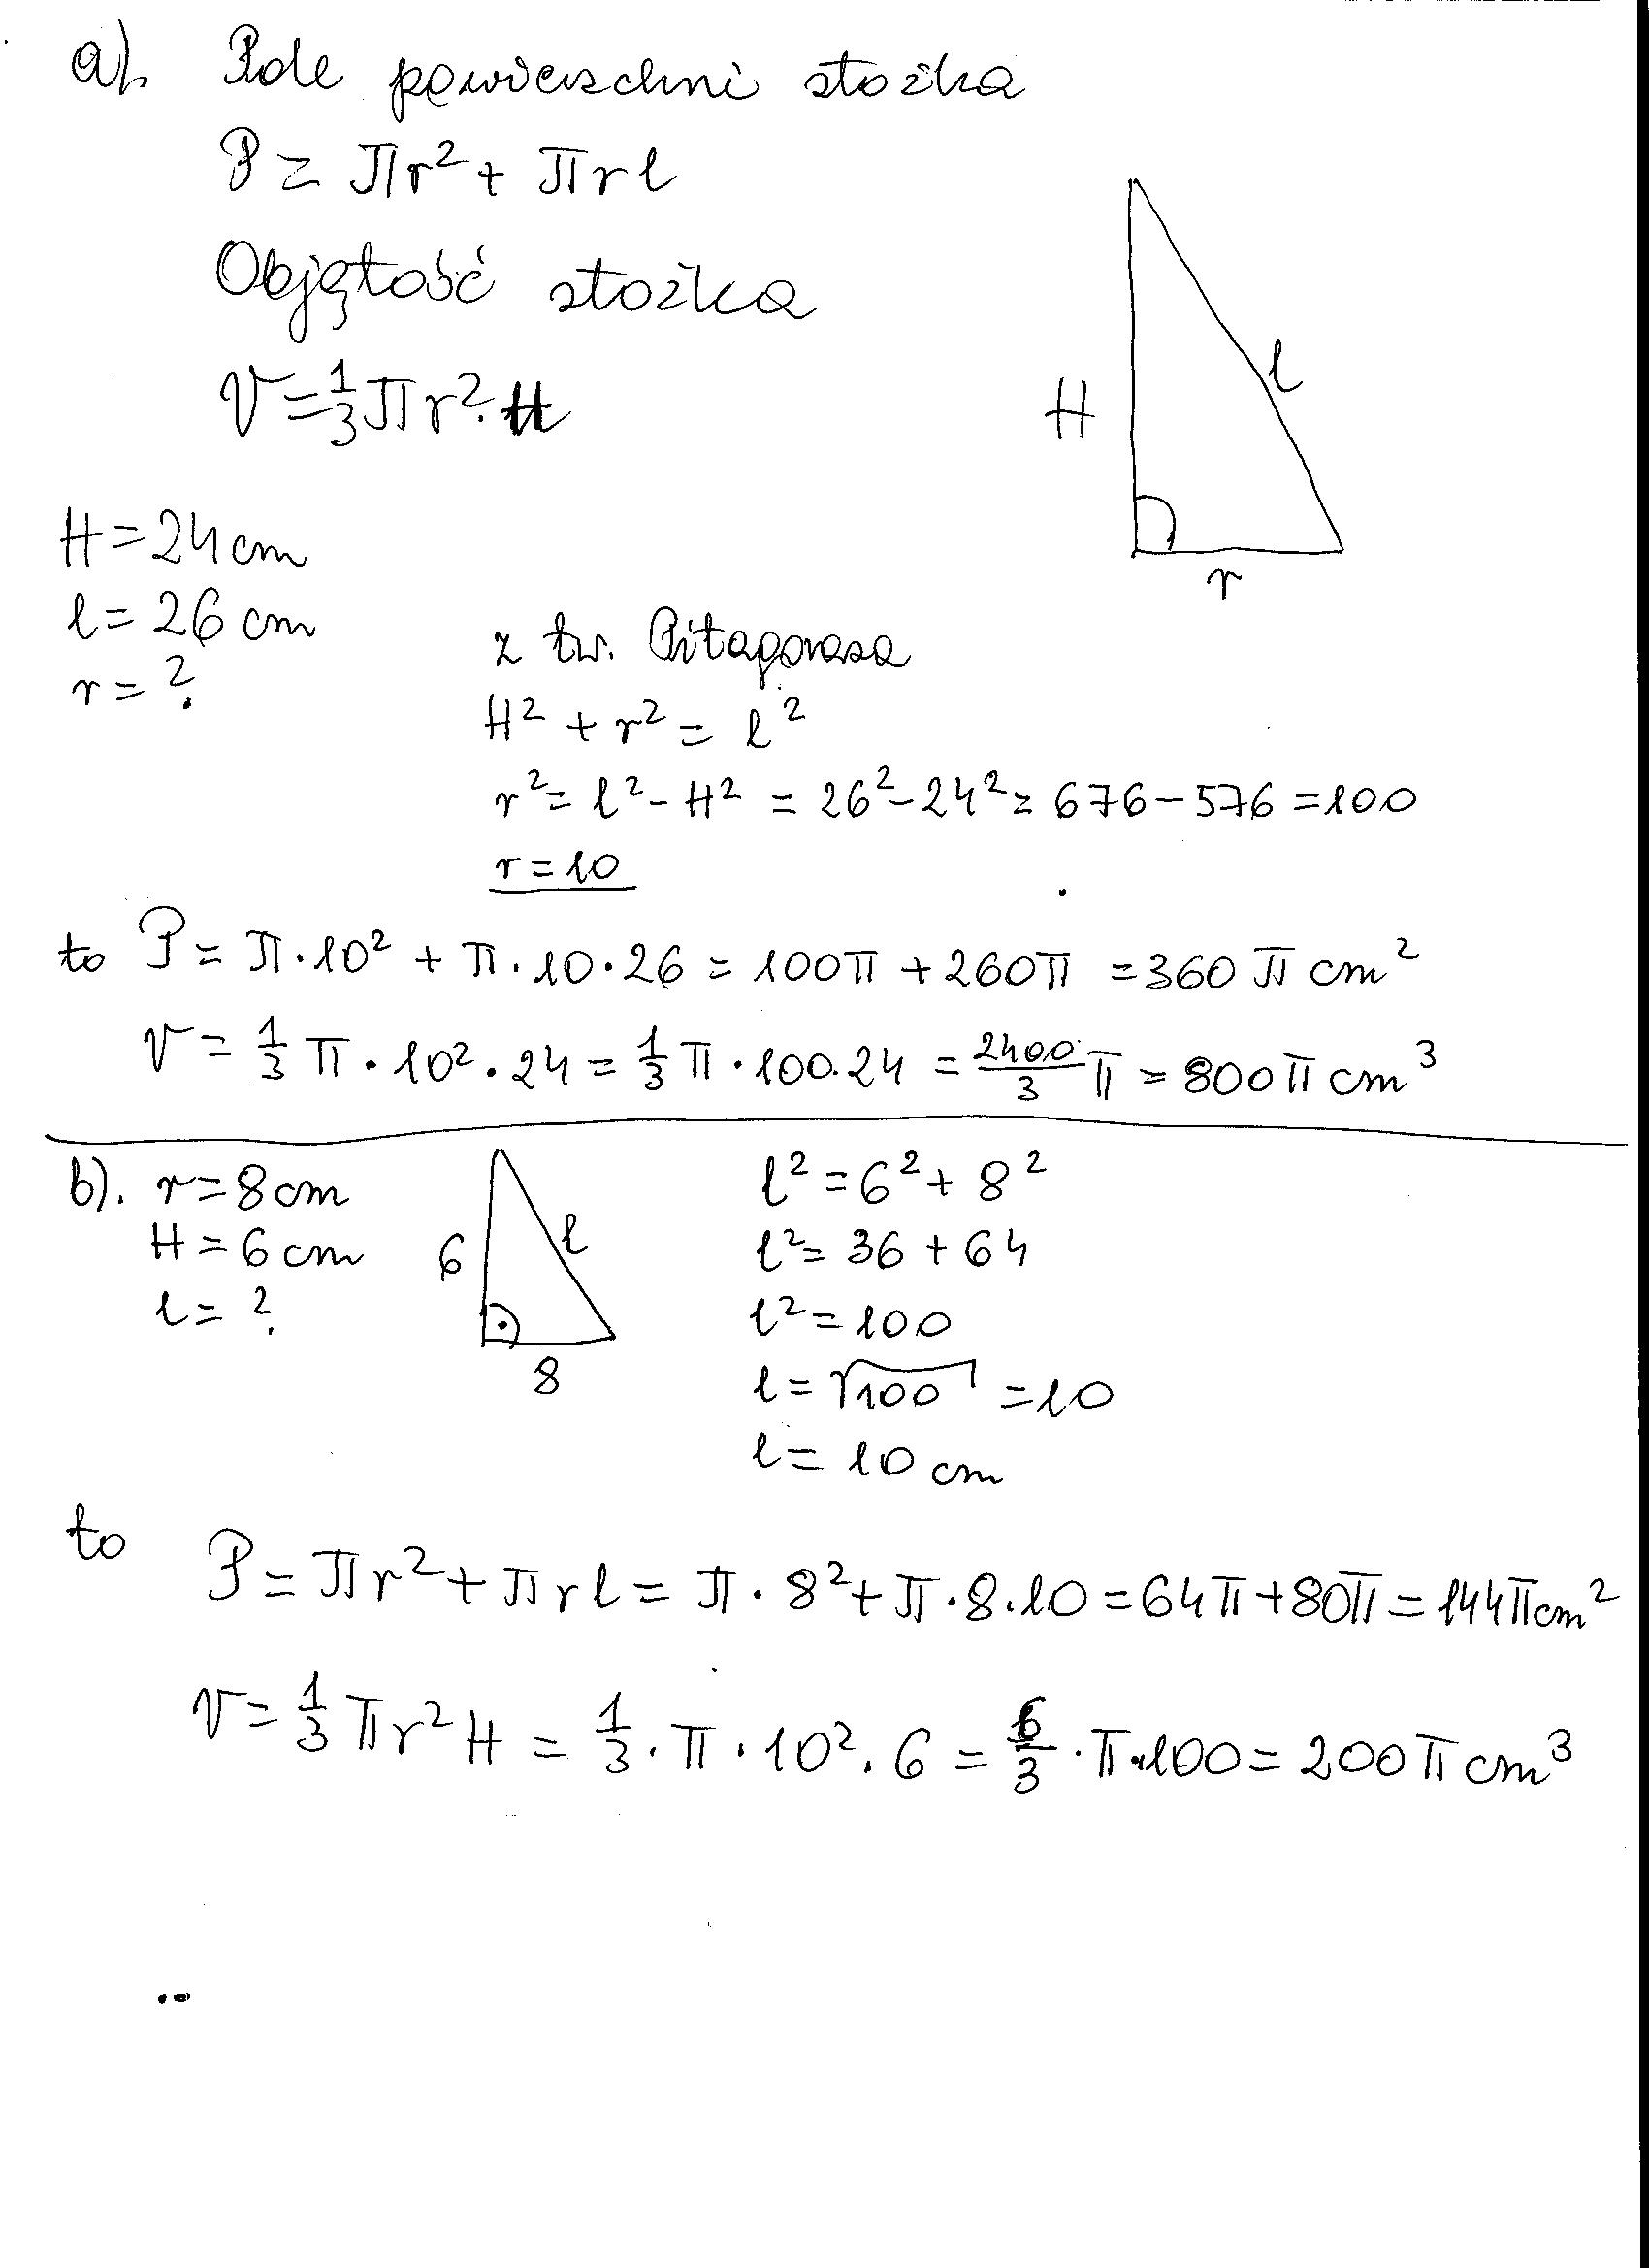 a). Pole powierzchni stożka
P = πr² + πrl
Objętość stożka
V = 1/3 πr² · H
H
l
r
H = 24 cm
l = 26 cm
r = ?
z tw. Pitagorasa
H² + r² = l²
r² = l² - H² = 26² - 24² = 676 - 576 = 100
r = 10
to P = π · 10² + π · 10 · 26 = 100π + 260π = 360 π cm²
V = 1/3 π · 10² · 24 = 1/3 π · 100 · 24 = 2400/3 π = 800 π cm³
b). r = 8 cm
H = 6 cm
l = ?
6
l
8
l² = 6² + 8²
l² = 36 + 64
l² = 100
l = √100 = 10
l = 10 cm
to
P = πr² + πrl = π · 8² + π · 8 · 10 = 64π + 80π = 144π cm²
V = 1/3 πr² H = 1/3 · π · 10² · 6 = 6/3 · π · 100 = 200 π cm³